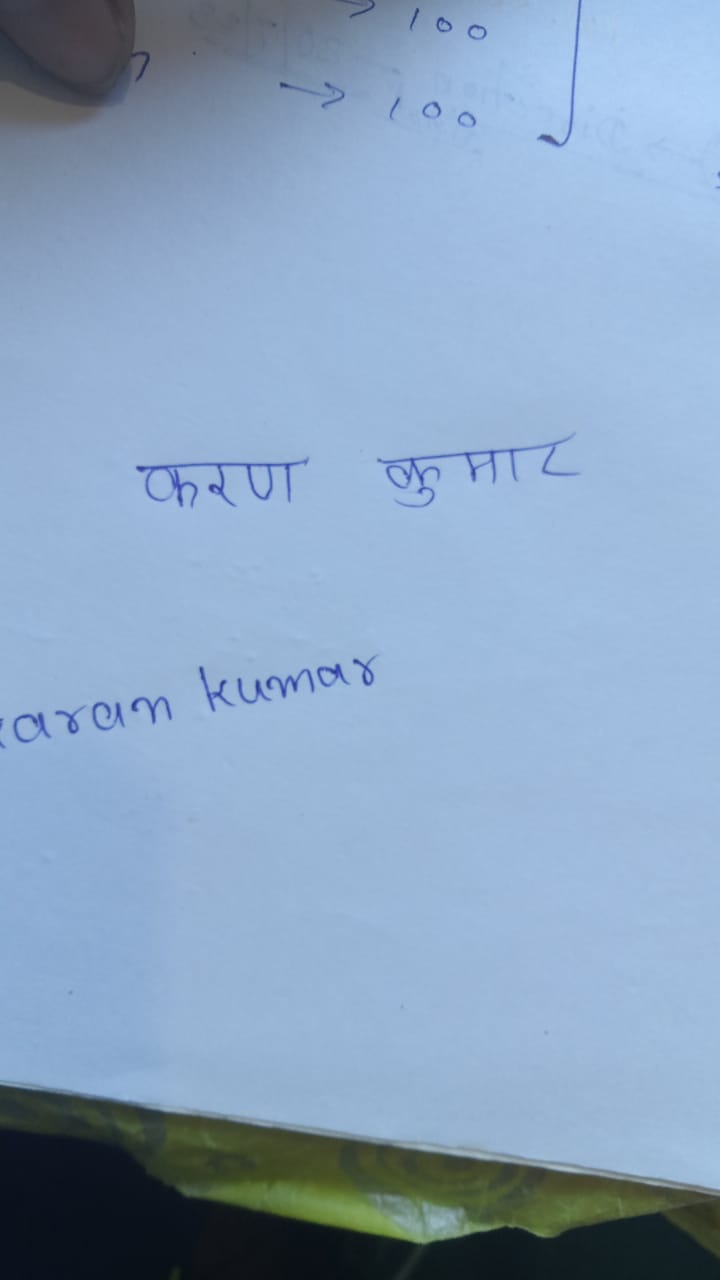 → 100
→ 100
करण कुमार
karan kumar